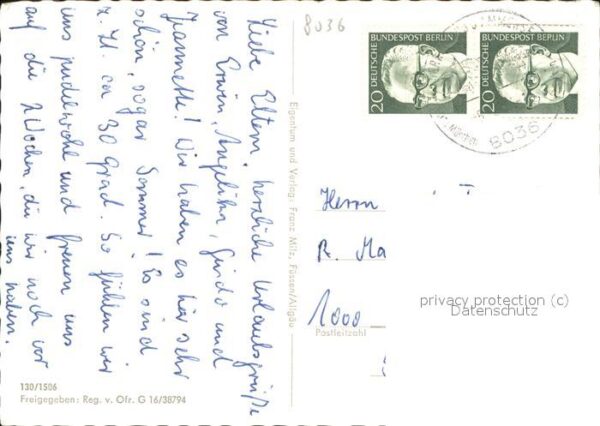 Liebe Eltern, herzliche Urlaubsgrüße
von Erwin, Angelika, Guido und
Jeannette! Wir haben es hier sehr
schön, sogar Sommer! Es sind
z. Zt. ca 30 Grad. So fühlen wir
uns pudelwohl und freuen uns
auf die 2 Wochen, die wir noch vor
uns haben.
130/1506
Freigegeben: Reg. v. Ofr. G 16/38794
Eigentum und Verlag: Franz Milz, Füssen/Allgäu
8036
DEUTSCHE BUNDESPOST BERLIN
20
DEUTSCHE BUNDESPOST BERLIN
20
8036
Herrn
R. Ma
1000
Postleitzahl
privacy protection (c)
Datenschutz